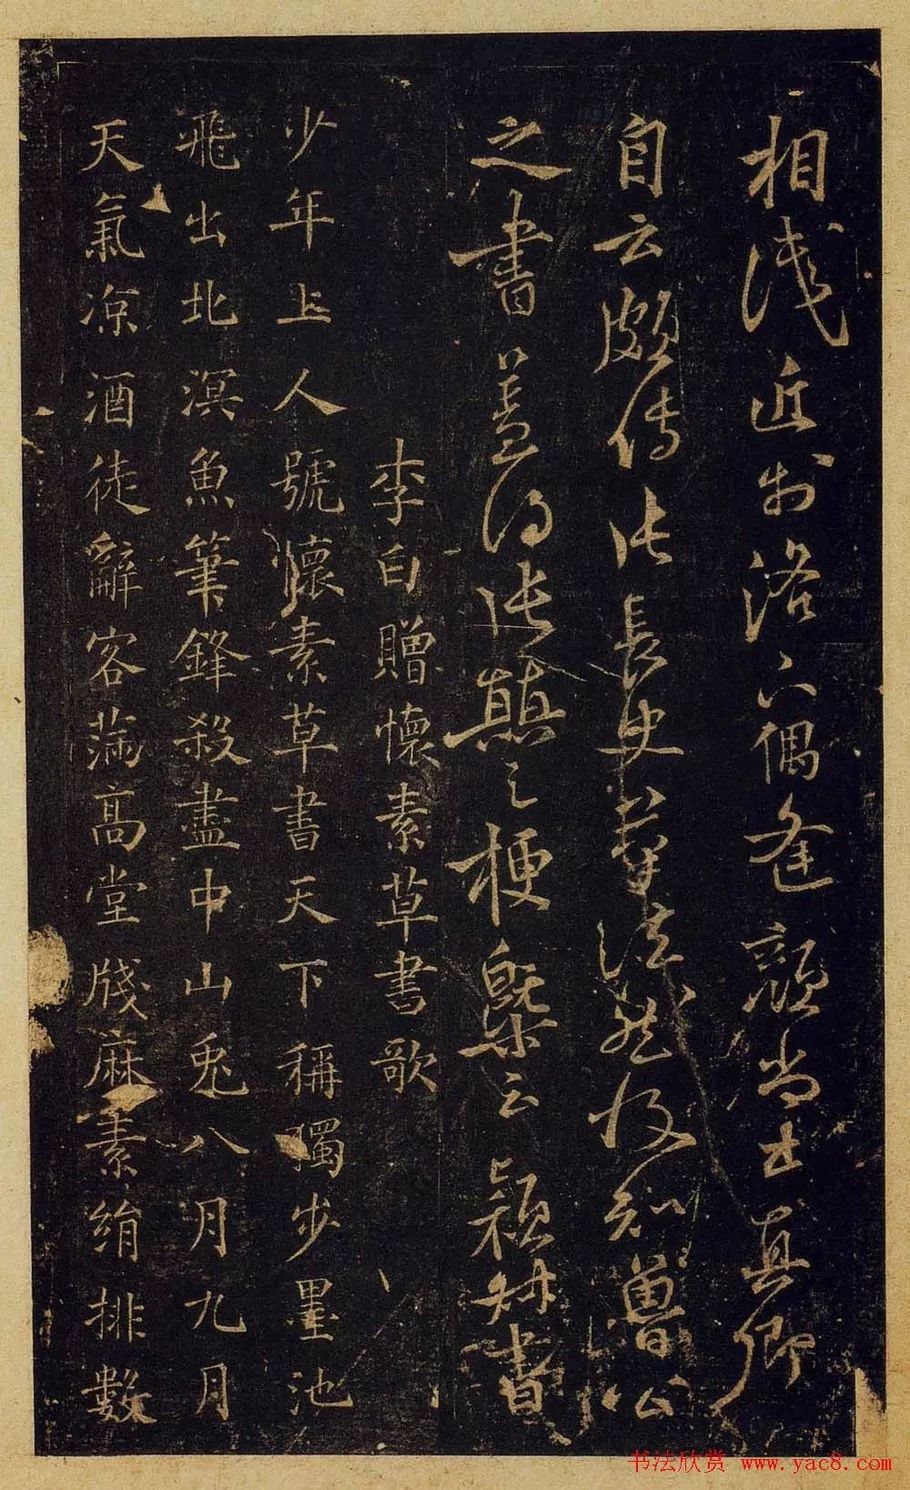 相淺近於洛下偶逢顏尚書真卿
自云頗傳張長史筆法然後知魯公
之書蓋得張顛之梗槩云 穎叔書
李白贈懷素草書歌
少年上人號懷素草書天下稱獨步墨池
飛出北溟魚筆鋒殺盡中山兔八月九月
天氣凉酒徒辭客滿高堂牋麻素絹排數
书法欣赏 www.yac8.com